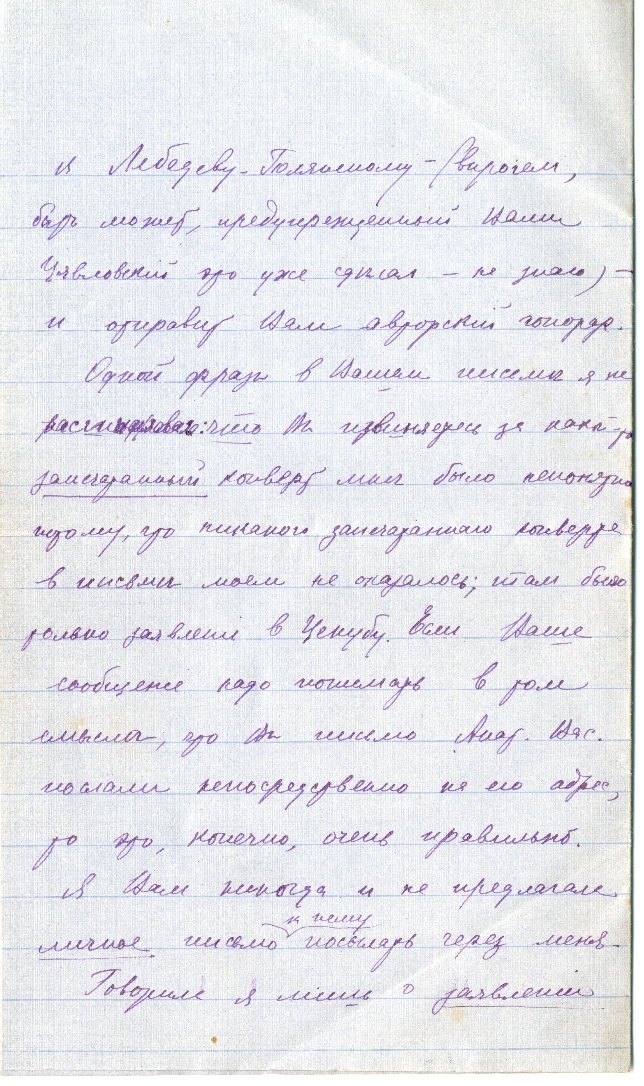 к Лебедеву-Полянскому – (впрочем,
быть может, предупрежденный Вами
Цявловский это уже сделал – не знаю) –
и отправит Вам авторский гонорар.
Одной фразы в Вашем письме я не
что Вы извиняетесь за какой-то
запечатанный конверт мне было непонятно
потому, что никакого запечатанного конверта
в письме моем не оказалось; там было
только заявление в Цекубу. Если Ваше
сообщение надо понимать в том
смысле, что Вы письмо Анат. Вас.
послали непосредственно на его адрес,
то это, конечно, очень правильно.
Я Вам никогда и не предлагал
личное письмо к нему посылать через меня.
Говорил я лишь о заявлении